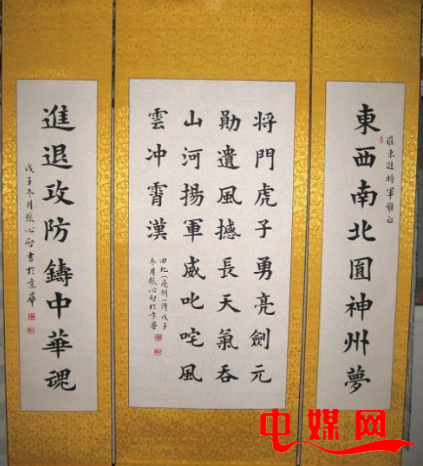 東西南北圓神州夢
羅東進將軍雅正
将門虎子勇亮劍元
勛遺風撼長天氣吞
山河揚軍威叱咤風
雲冲霄漢
詩戊子
冬月張心智於京華
進退攻防鑄中華魂
戊子冬月張心智書於京華
电媒网